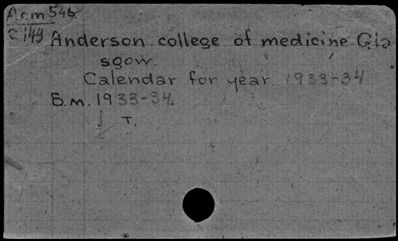 Acm 545
C 149
Anderson college of medicine Gla
sgow.
Calendar for year 1933-34
B.m. 1933-34.
T.